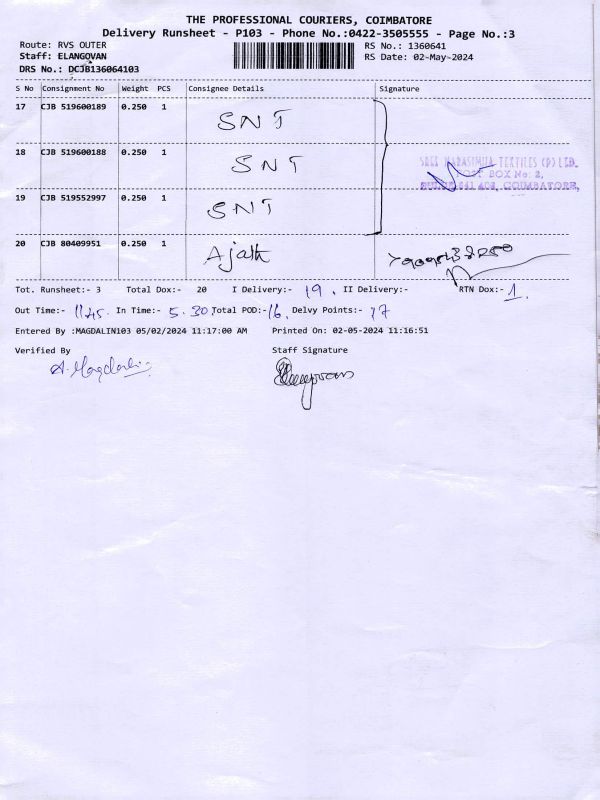 THE PROFESSIONAL COURIERS, COIMBATORE
Delivery Runsheet - P103 - Phone No.:0422-3505555 - Page No.:3
Route: RVS OUTER
RS No.: 1360641
Staff: ELANGOVAN
RS Date: 02-May-2024
DRS No.: DCJB136064103
S No Consignment No Weight PCS Consignee Details Signature
17 CJB 519600189 0.250 1 SNT
18 CJB 519600188 0.250 1 SNT
SREE NARASIMHA TEXTILES (P) LTD.
POST BOX No: 2,
19 CJB 519552997 0.250 1 SNT
COIMBATORE,
20 CJB 80409951 0.250 1 Ajath
Tot. Runsheet:- 3 Total Dox:- 20 I Delivery:- 19. II Delivery:- RTN Dox:- 1.
Out Time:- 1145. In Time:- 5.30 Total POD:- 16, Delvy Points:- 17
Entered By :MAGDALIN103 05/02/2024 11:17:00 AM Printed On: 02-05-2024 11:16:51
Verified By Staff Signature
A. Magdalin Elangovan